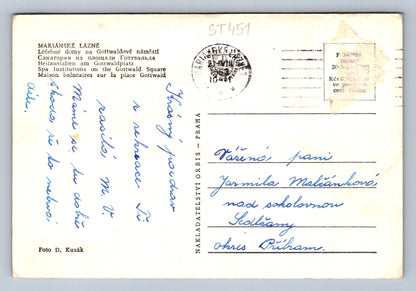 ST451
MARIÁNSKÉ LÁZNĚ
Léčebné domy na Gottwaldově náměstí
Санатории на площади Готтвальда
Heilanstalten am Gottwaldplatz
Spa Institutions on the Gottwald Square
Maison balnéaires sur la place Gottwald
Krásný pozdrav
z rekreace Ti
zasílá M. V.
Máme se tu dobře
škoda že to netrvá
déle.
Foto D. Kusák
NAKLADATELSTVÍ ORBIS - PRAHA
Vážená paní
Jarmila Malčánková
nad sokolovnou
Sedlčany
okres Příbram.